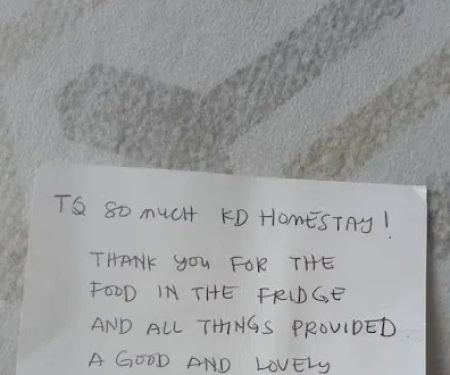 TQ SO mucH KD HOMESTAY!
THANK you FOR THE
FOOD IN THE FRIDGE
AND ALL THINGS PROVIDED.
A GOOD AND LOVELY